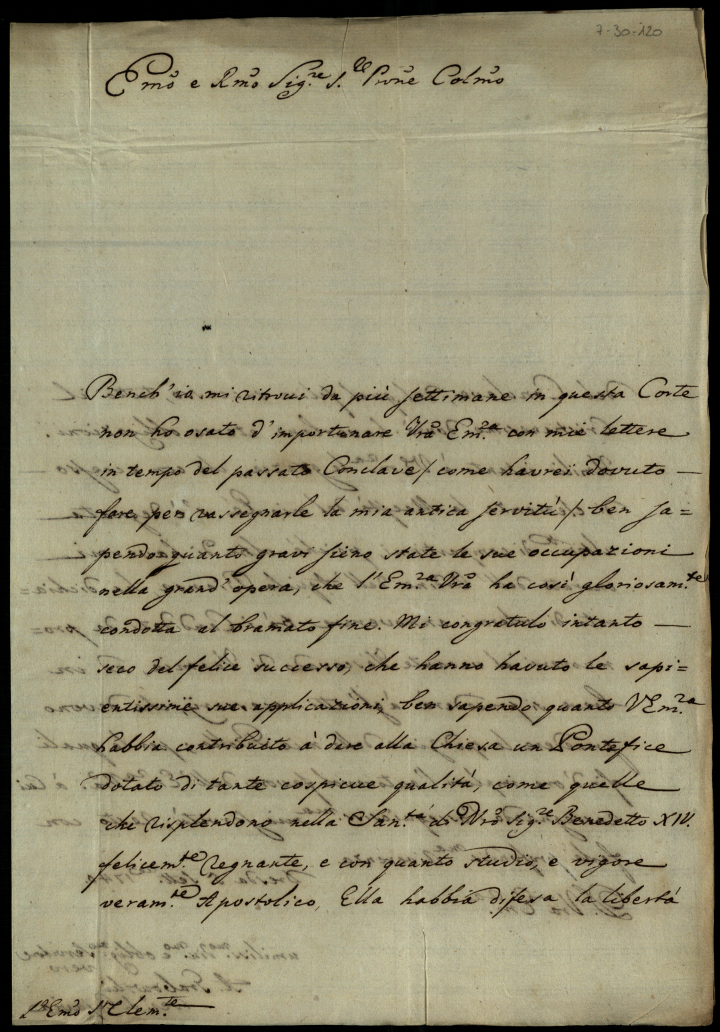 7-30-120
Emo e Rmo Sig.re S.re Prone Colmo
Bench'io mi ritroui da più settimane in questa Corte
non ho osato d'importunare Vra Em.za con mie lettere
in tempo del passato Conclave / come havrei dovuto
fare per rassegnarle la mia antica servitù / ben sa=
pendo quanto gravi sieno state le sue occupazioni
nella grand'opera, che l'Em.za Vra ha così gloriosam.te
condotta al bramato fine. Mi congratulo intanto
seco del felice successo, che hanno havuto le sapi=
entissime sue applicazioni, ben sapendo quanto VEm.za
habbia contribuito à dare alla Chiesa un Pontefice
dotato di tante cospicue qualità, come quelle
che risplendono nella San.tà di Nro Sig.re Benedetto XIV.
felicem.te regnante, e con quanto studio, e vigore
veram.te Apostolico, Ella habbia difesa la libertà